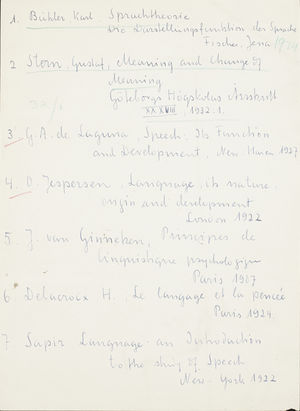 1. Bühler, Karl, Sprachtheorie
Die Darstellungsfunktion der Sprache
Fischer, Jena 1934
2 Stern, Gustaf, Meaning and Change of
Meaning
Göteborgs Högskolas Årsskrift
XXXVIII, 1932:1.
3. G. A. de Laguna, Speech: Its Function
and Development, New Haven 1927
4. O. Jespersen, Language, its nature
origin and development
London 1922
5. J. van Ginneken, Principes de
linguistique psychologique
Paris 1907
6 Delacroix H., Le langage et la pensée
Paris 1924
7 Sapir Language – an Introduction
to the study of Speech
New-York 1922